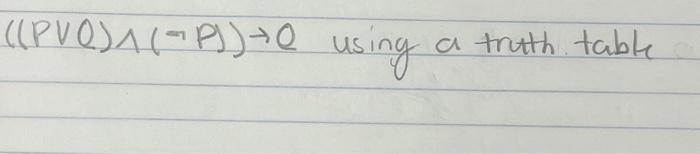 ((P∨Q)∧(¬P))→Q using a truth table